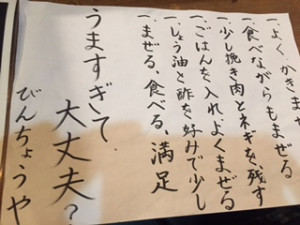 一.よく、かきまぜ
一.食べながらもまぜる
一.少し挽き肉とネギを、残す
一.ごはんを、入れ、よくまぜる
一.しょう油と酢を好みで少し
一.まぜる、食べる、満足
うますぎて、
大丈夫?
びんちょうや